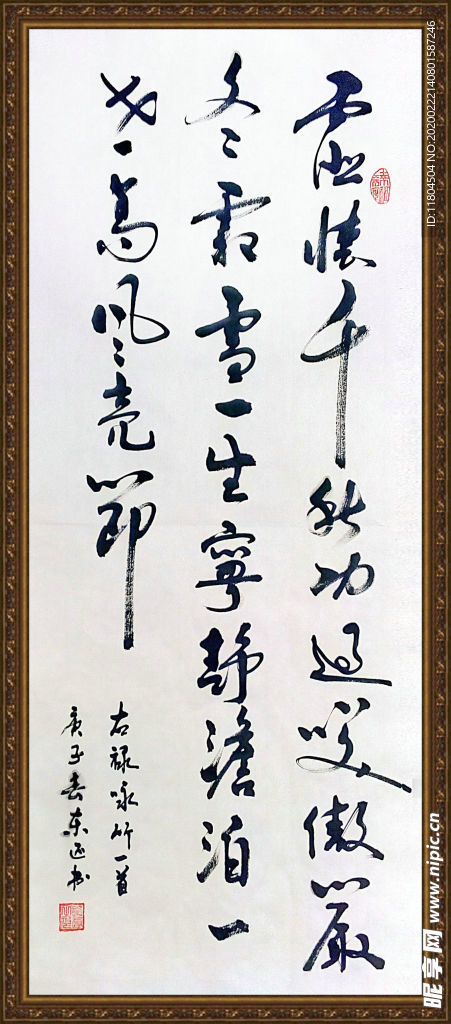 虛懷千秋功過笑傲嚴
冬霜雪一生寧靜澹泊一
世高風亮節
右録咏竹一首
庚子春東正書
ID:11804504 NO:20200222140801587246
昵享网 www.nipic.cn